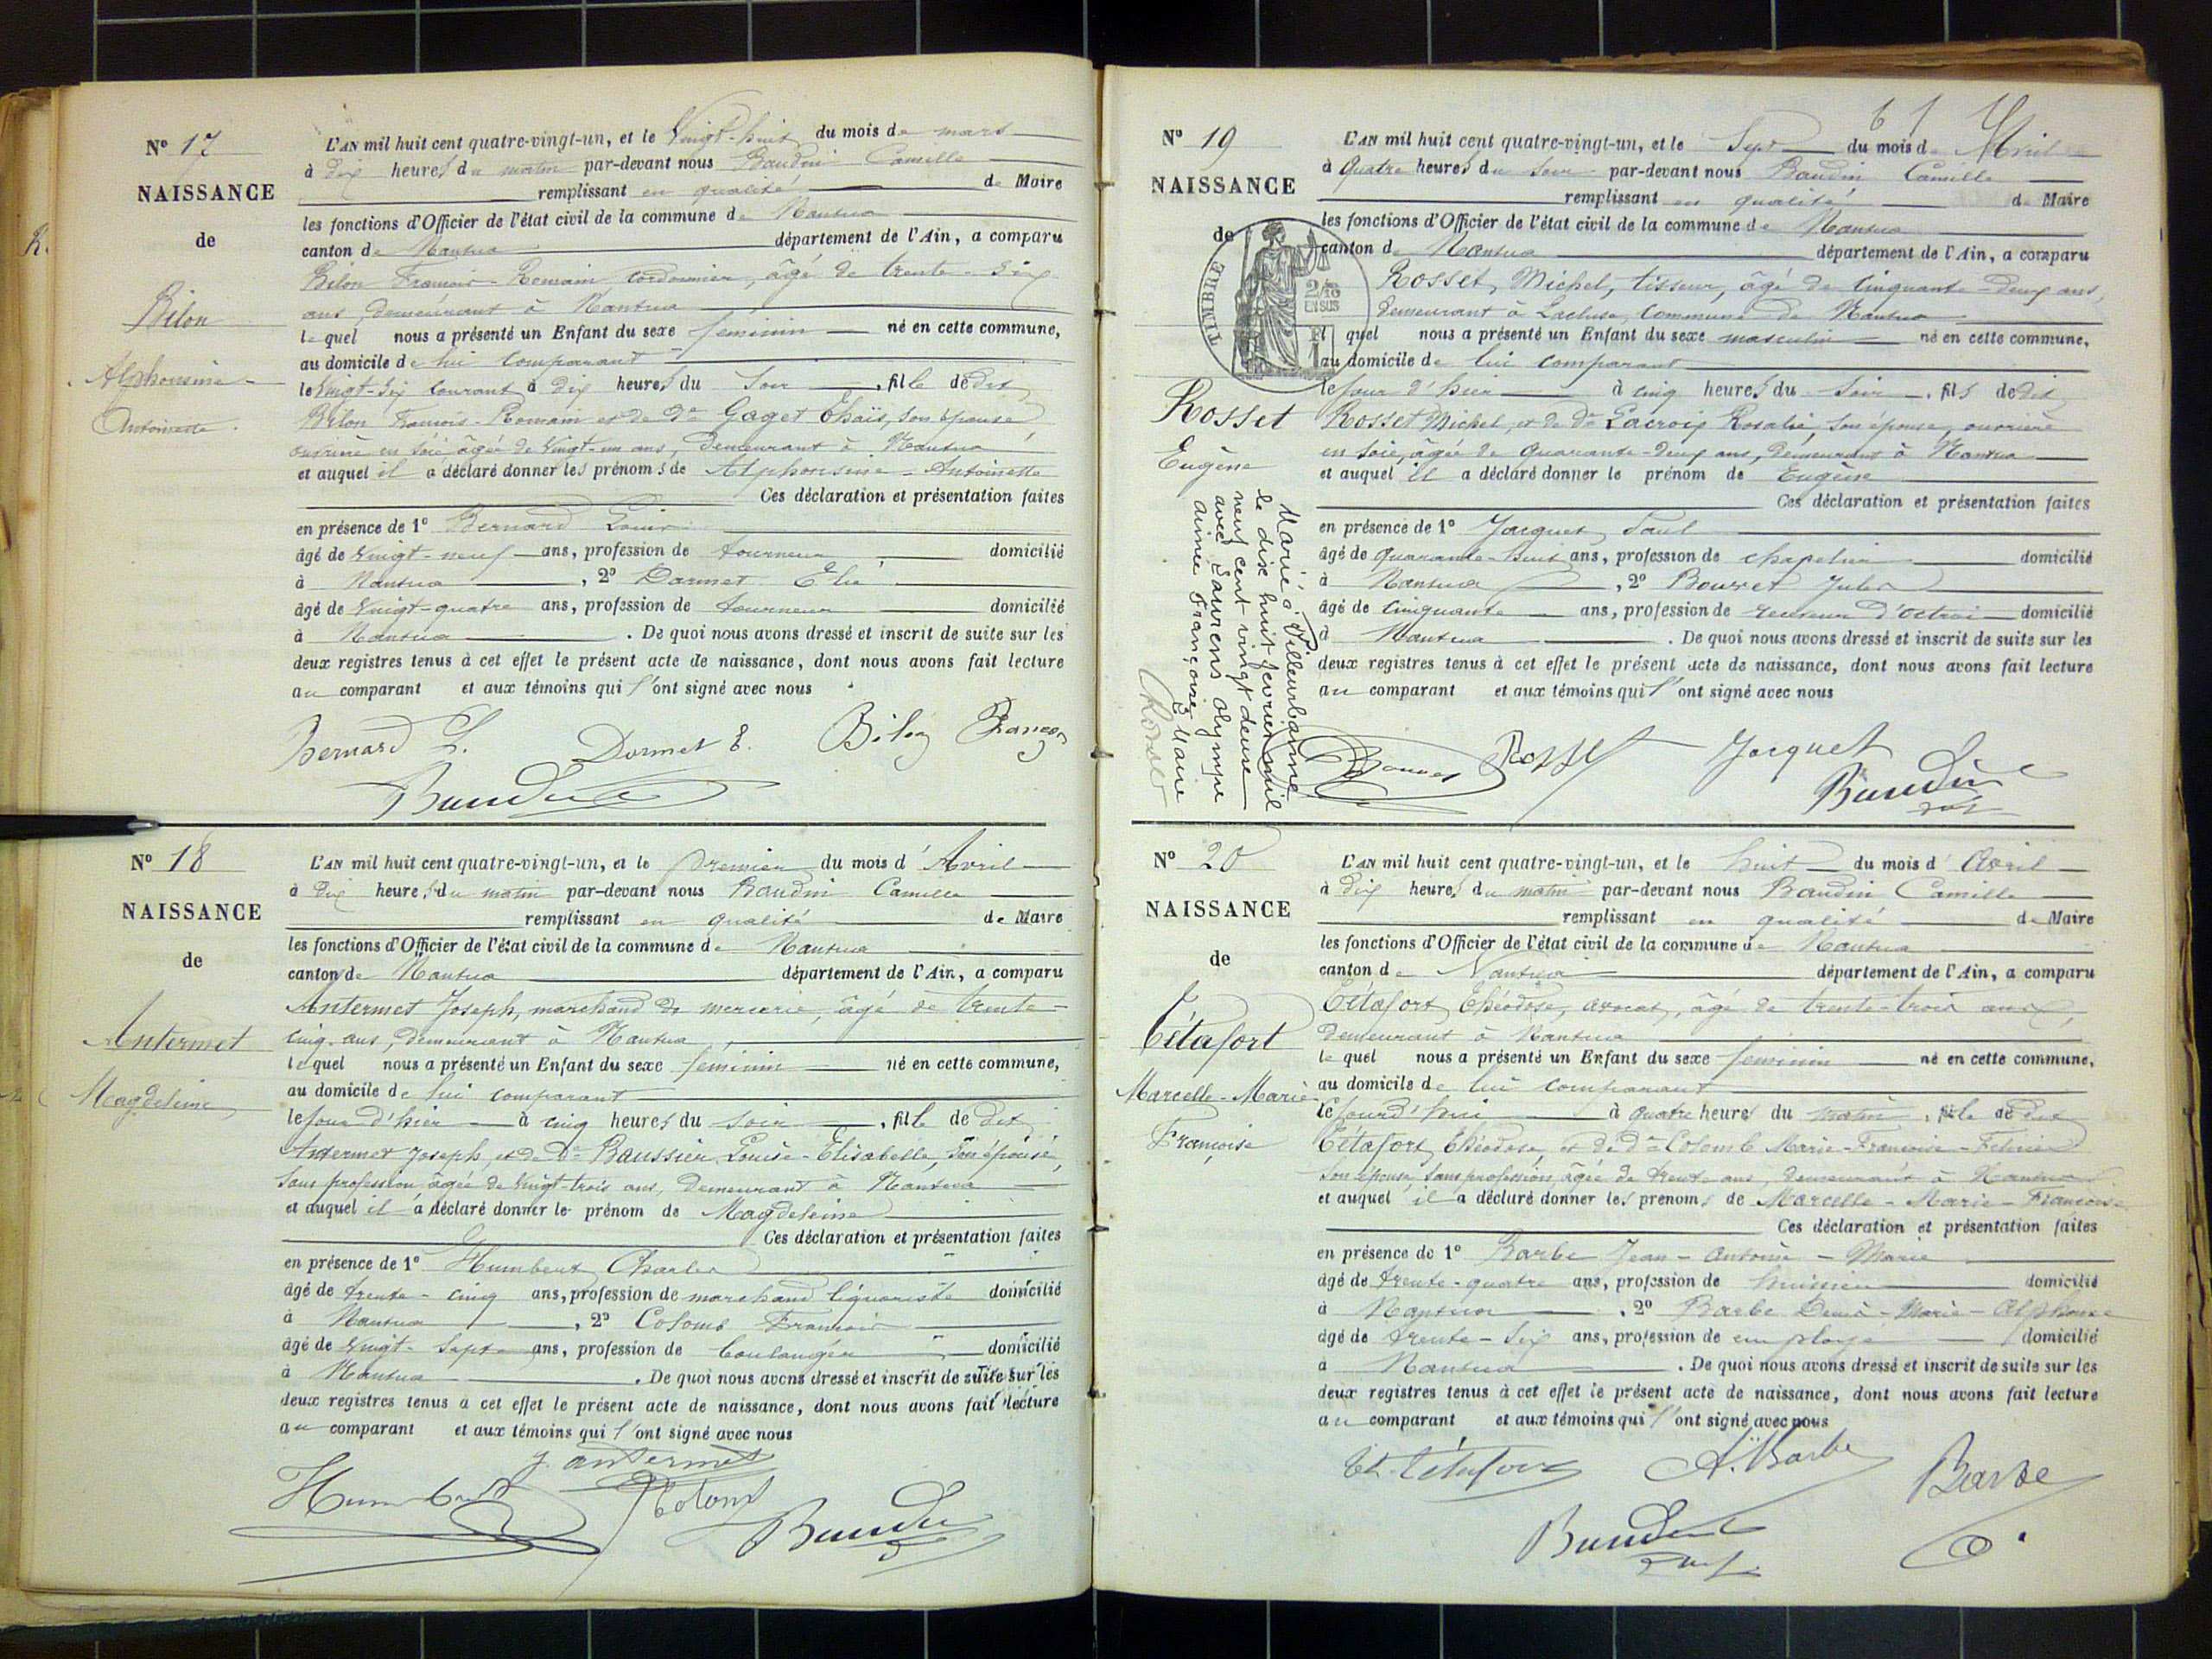 R.
N° 17
NAISSANCE
de
Bilon
Alphonsine
Antoinette
L'AN mil huit cent quatre-vingt-un, et le Vingt-huit du mois de mars
à dix heures du matin par-devant nous Baudin Camille
remplissant en qualité de Maire
les fonctions d'Officier de l'état civil de la commune de Nantua
canton de Nantua département de l'Ain, a comparu
Bilon François-Romain, cordonnier, âgé de trente-six
ans, demeurant à Nantua
lequel nous a présenté un Enfant du sexe féminin né en cette commune,
au domicile de lui comparant
le Vingt-six courant à dix heures du soir, fille de dit
Bilon François-Romain et de De Goget Thaïs, son épouse
ouvrière en soie âgée de vingt-un ans, demeurant à Nantua
et auquel il a déclaré donner les prénoms de Alphonsine-Antoinette
Ces déclaration et présentation faites
en présence de 1° Bernard Louis
âgé de vingt-neuf ans, profession de tourneur domicilié
à Nantua, 2° Darmet Élie
âgé de vingt-quatre ans, profession de tourneur domicilié
à Nantua. De quoi nous avons dressé et inscrit de suite sur les
deux registres tenus à cet effet le présent acte de naissance, dont nous avons fait lecture
au comparant et aux témoins qui l'ont signé avec nous
Bernard L. Darmet E. Bilon François
Baudin
N° 18
NAISSANCE
de
Antermet
Magdeleine
L'AN mil huit cent quatre-vingt-un, et le premier du mois d'Avril
à dix heures du matin par-devant nous Baudin Camille
remplissant en qualité de Maire
les fonctions d'Officier de l'état civil de la commune de Nantua
canton de Nantua département de l'Ain, a comparu
Antermet Joseph, marchand de mercerie, âgé de trente-
cinq ans, demeurant à Nantua
lequel nous a présenté un Enfant du sexe féminin né en cette commune,
au domicile de lui comparant
le jour d'hier à cinq heures du soir, fille de dit
Antermet Joseph, et de De Baussier Louise-Elisabelle, son épouse,
sans profession âgée de vingt-trois ans, demeurant à Nantua
et auquel il a déclaré donner le prénom de Magdeleine
Ces déclaration et présentation faites
en présence de 1° Humbert Charles
âgé de trente-cinq ans, profession de marchand liquoriste domicilié
à Nantua, 2° Colomb François
âgé de vingt-sept ans, profession de boulanger domicilié
à Nantua. De quoi nous avons dressé et inscrit de suite sur les
deux registres tenus à cet effet le présent acte de naissance, dont nous avons fait lecture
au comparant et aux témoins qui l'ont signé avec nous
J. antermet
Humbert Colomb Baudin
N° 19
NAISSANCE
de
TIMBRE
2/10
EN SUS
Rosset
Eugène
Marié à Villeurbanne
le dix huit fevrier mil
neuf cent vingt deux
avec Laurens Olympe
aimée Françoise Marie
L'AN mil huit cent quatre-vingt-un, et le Sept du mois d'Avril
à quatre heures du soir par-devant nous Baudin Camille
remplissant en qualité de Maire
les fonctions d'Officier de l'état civil de la commune de Nantua
canton de Nantua département de l'Ain, a comparu
Rosset, Michel, tisseur, âgé de cinquante deux ans,
demeurant à Lacluse, commune de Nantua
el quel nous a présenté un Enfant du sexe masculin né en cette commune,
au domicile de lui comparant
le jour d'hier à cinq heures du soir. fils de dit
Rosset Michel, et de De Lacroix Rosalie, son épouse, ouvrière
en soie, âgée de quarante-deux ans, demeurant à Nantua
et auquel il a déclaré donner le prénom de Eugène
Ces déclaration et présentation faites
en présence de 1° Jacquet Paul
âgé de quarante-huit ans, profession de chapelier domicilié
à Nantua, 2° Bouvret Jules
âgé de cinquante ans, profession de receveur d'octroi domicilié
à Nantua. De quoi nous avons dressé et inscrit de suite sur les
deux registres tenus à cet effet le présent acte de naissance, dont nous avons fait lecture
au comparant et aux témoins qui l'ont signé avec nous
Rosset Jacquet
Baudin
N° 20
NAISSANCE
de
Tétafort
Marcelle-Marie
Françoise
L'AN mil huit cent quatre-vingt-un, et le huit du mois d'Avril
à dix heures du matin par-devant nous Baudin Camille
remplissant en qualité de Maire
les fonctions d'Officier de l'état civil de la commune de Nantua
canton de Nantua département de l'Ain, a comparu
Tétafort Théodose, avocat, âgé de trente-trois ans,
demeurant à Nantua
lequel nous a présenté un Enfant du sexe féminin né en cette commune,
au domicile de lui comparant
le jourd'hui à quatre heures du matin, fille de dit
Tétafort Théodose, et de De Colomb Marie-Françoise-
son épouse sans profession, âgée de trente ans, demeurant à Nantua
et auquel il a déclaré donner les prénoms de Marcelle-Marie-Françoise
Ces déclaration et présentation faites
en présence de 1° Barbe Jean-Antoine-Marie
âgé de trente-quatre ans, profession de huissier domicilié
à Nantua, 2° Barbe Denis-Marie-Alphonse
âgé de trente-six ans, profession de employé domicilié
à Nantua. De quoi nous avons dressé et inscrit de suite sur les
deux registres tenus à cet effet le présent acte de naissance, dont nous avons fait lecture
au comparant et aux témoins qui l'ont signé avec nous
Th. Tétafort A. Barbe Barbe
Baudin